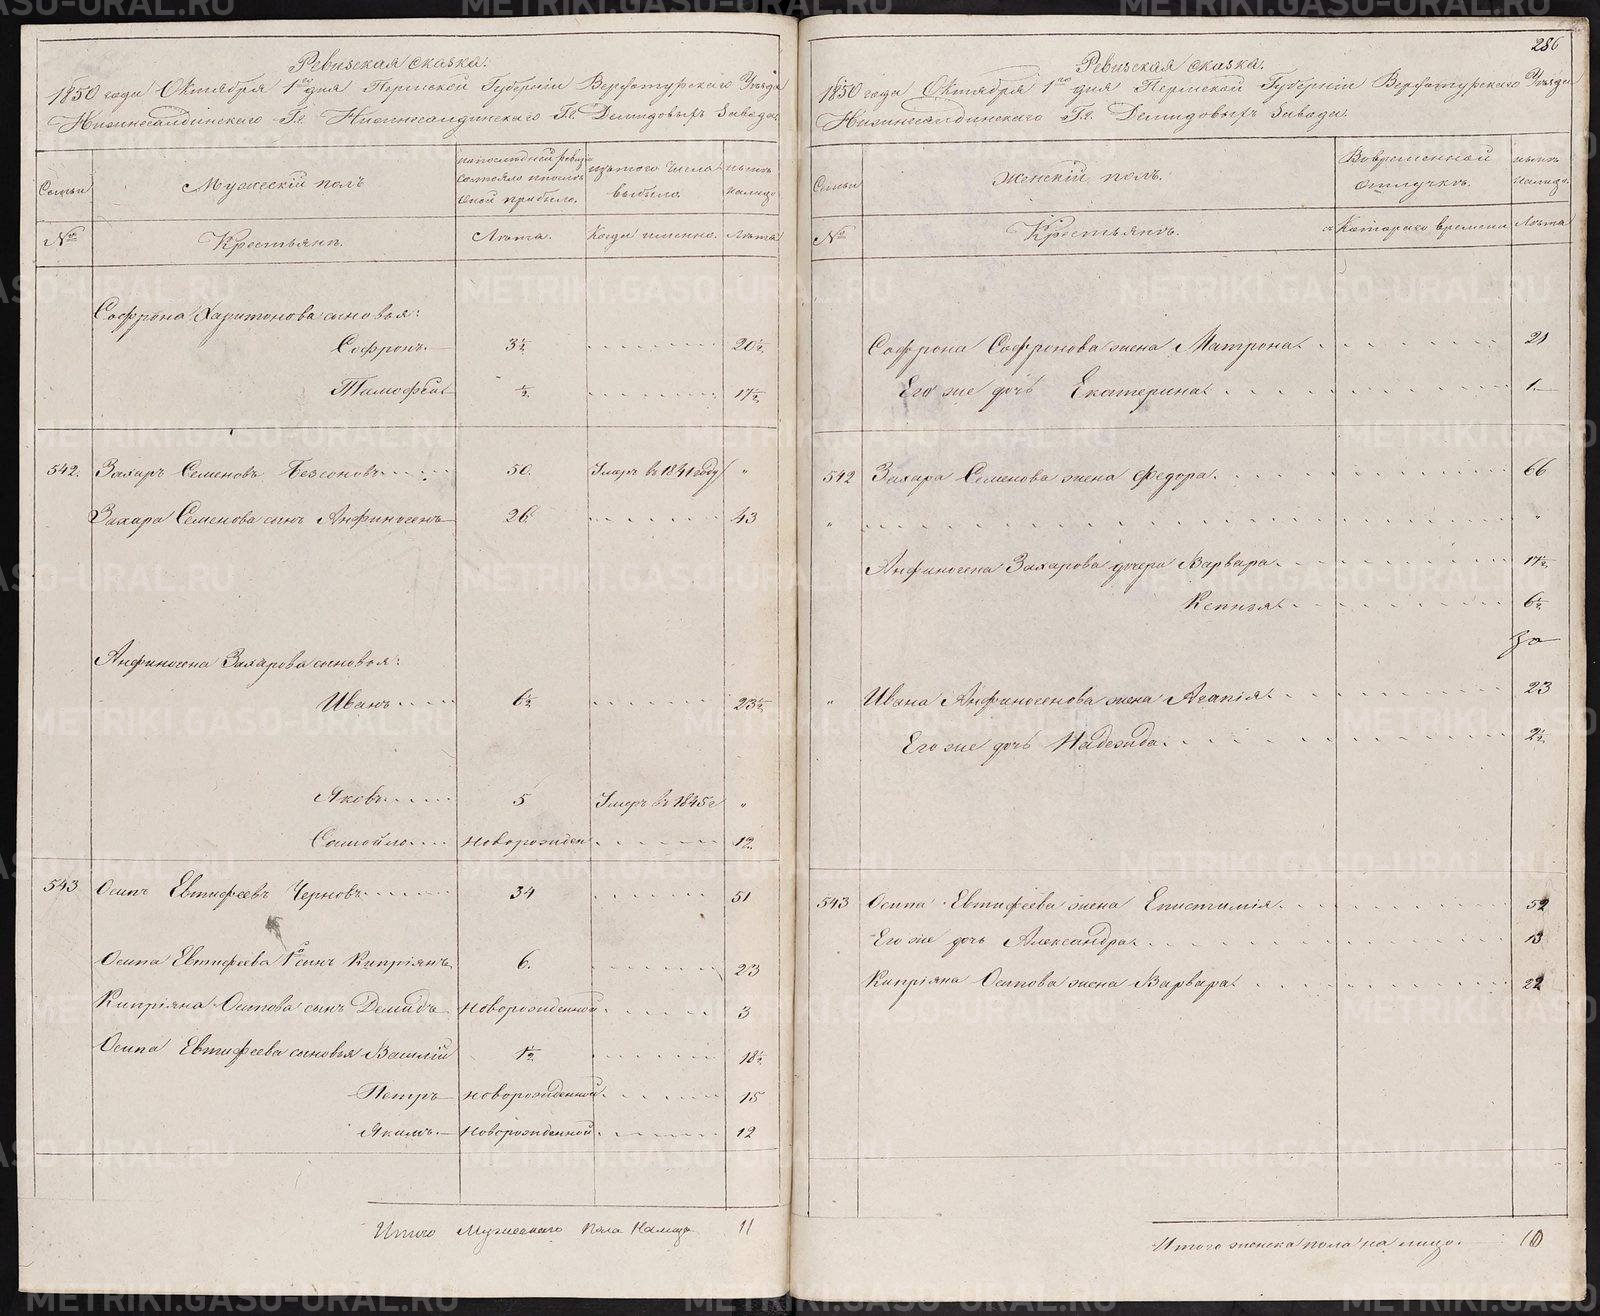 Ревизская сказка.
1850 года Октября 1го дня Пермской Губернiи Верхотурскаго Уезда
Нижнесалдинскаго Гг. Демидовыхъ Завода
Семьи
Мужескiй полъ
по последней ревизiи состояло и после оной прибыло.
изъ того числа выбыло.
ныне на лицо
№
Крестьянъ.
Лета.
Когда именно.
Лета
Софрона Харитонова сыновья:
Софронъ 3½ 20½
Тимофей ½ 17½
542. Захаръ Семеновъ Безсоновъ 50. Умеръ въ 1841 году "
Захара Семенова сынъ Анфиногенъ 26 43
Анфиногена Захарова сыновья:
Иванъ 6½ 23½
Яковъ 5 Умеръ въ 1845 г "
Самойло Новорожден 12.
543 Осипъ Евтифеевъ Черновъ 34 51
Осипа Евтифеева 1й сынъ Кипрiянъ 6. 23
Кипрiяна Осипова сынъ Демидъ Новорожденной 3
Осипа Евтифеева сыновья Василiй 1½ 18½
Петръ новорожденной 15
Якимъ Новорожденной 12
Итого Мужескаго пола на лицо 11
286
Ревизская сказка.
1850 года Октября 1го дня Пермской Губернiи Верхотурскаго Уезда
Нижнесалдинскаго Гг. Демидовыхъ Завода.
Семьи
Женскiй полъ.
Во временной отлучке.
ныне на лицо.
№
Крестьянъ.
съ Котораго времени
Лета
Софрона Софронова жена Матрона 21
Его же дочь Екатерина 1
542 Захара Семенова жена Федора. 66
" "
Анфиногена Захарова дочери Варвара 17½
Ксенья 6½
" Ивана Анфиногенова жена Агапiя 23
Его же дочь Надежда 2½
543 Осипа Евтифеева жена Епистимiя 52
Его же дочь Александра 13
Кипрiяна Осипова жена Варвара 22
Итого женска пола на лицо. 10
METRIKI.GASO-URAL.RU